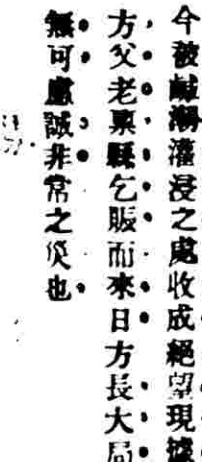 今被鹹潮灌浸之處收成絕望現據
方父老稟縣乞賑而來日方長大局
無可慮誠非常之災也